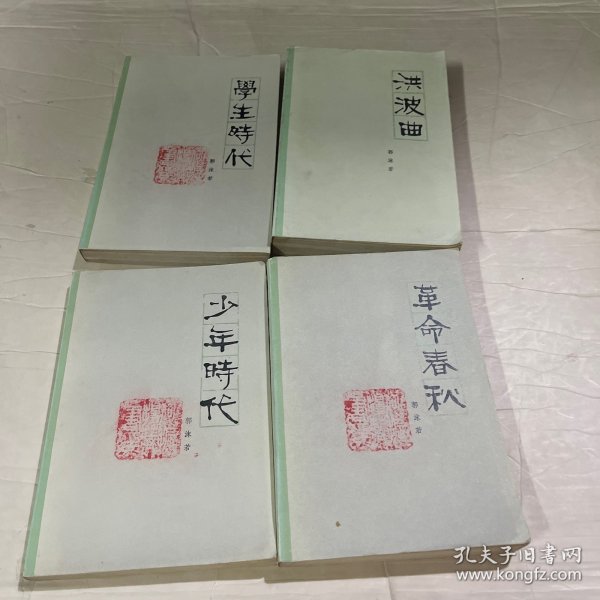 學生時代
郭沫若
洪波曲
郭沫若
少年時代
郭沫若
革命春秋
郭沫若
孔夫子旧書网
www.kongfz.com